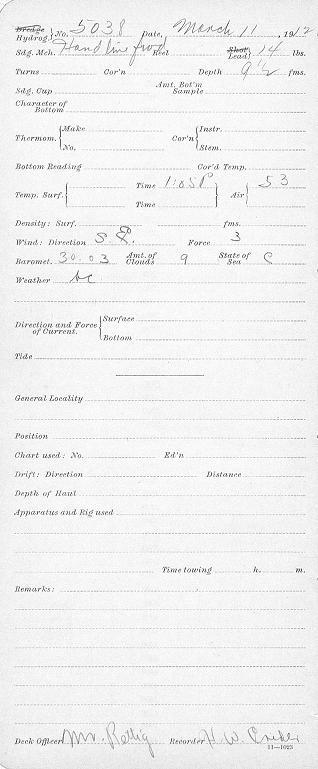 Dredge
Hydrog. } No. 5038 Date, March 11, 1912
Sdg. Mch. Hand line from Reel Shot Lead } 14 lbs.
Turns Cor'n Depth 9½ fms.
Sdg. Cup Amt. Bot'm Sample
Character of Bottom
Thermom. { Make Cor'n { Instr.
No. Stem.
Bottom Reading Cor'd Temp.
Temp. Surf. { Time 1:05 P Air { 53
Time
Density: Surf. fms.
Wind: Direction S.E. Force 3
Baromet. 30.03 Amt. of Clouds 9 State of Sea C
Weather bc
Direction and Force of Current. { Surface
Bottom
Tide
General Locality
Position
Chart used: No. Ed'n
Drift: Direction Distance
Depth of Haul
Apparatus and Rig used
Time towing h. m.
Remarks:
Deck Officer Mr. Rettig Recorder H. W.
11—1023